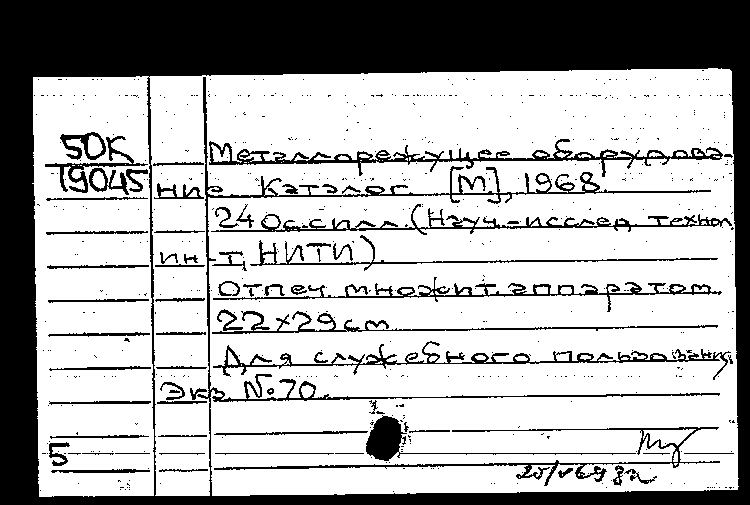 50К
19045
Металлорежущее оборудова-
ние Каталог. [М], 1968.
240с. с илл. (Науч.-исслед технол
ин-т, НИТИ).
Отпеч. множит. аппаратом.
22х29см
Для служебного пользования.
Экз №70.
5